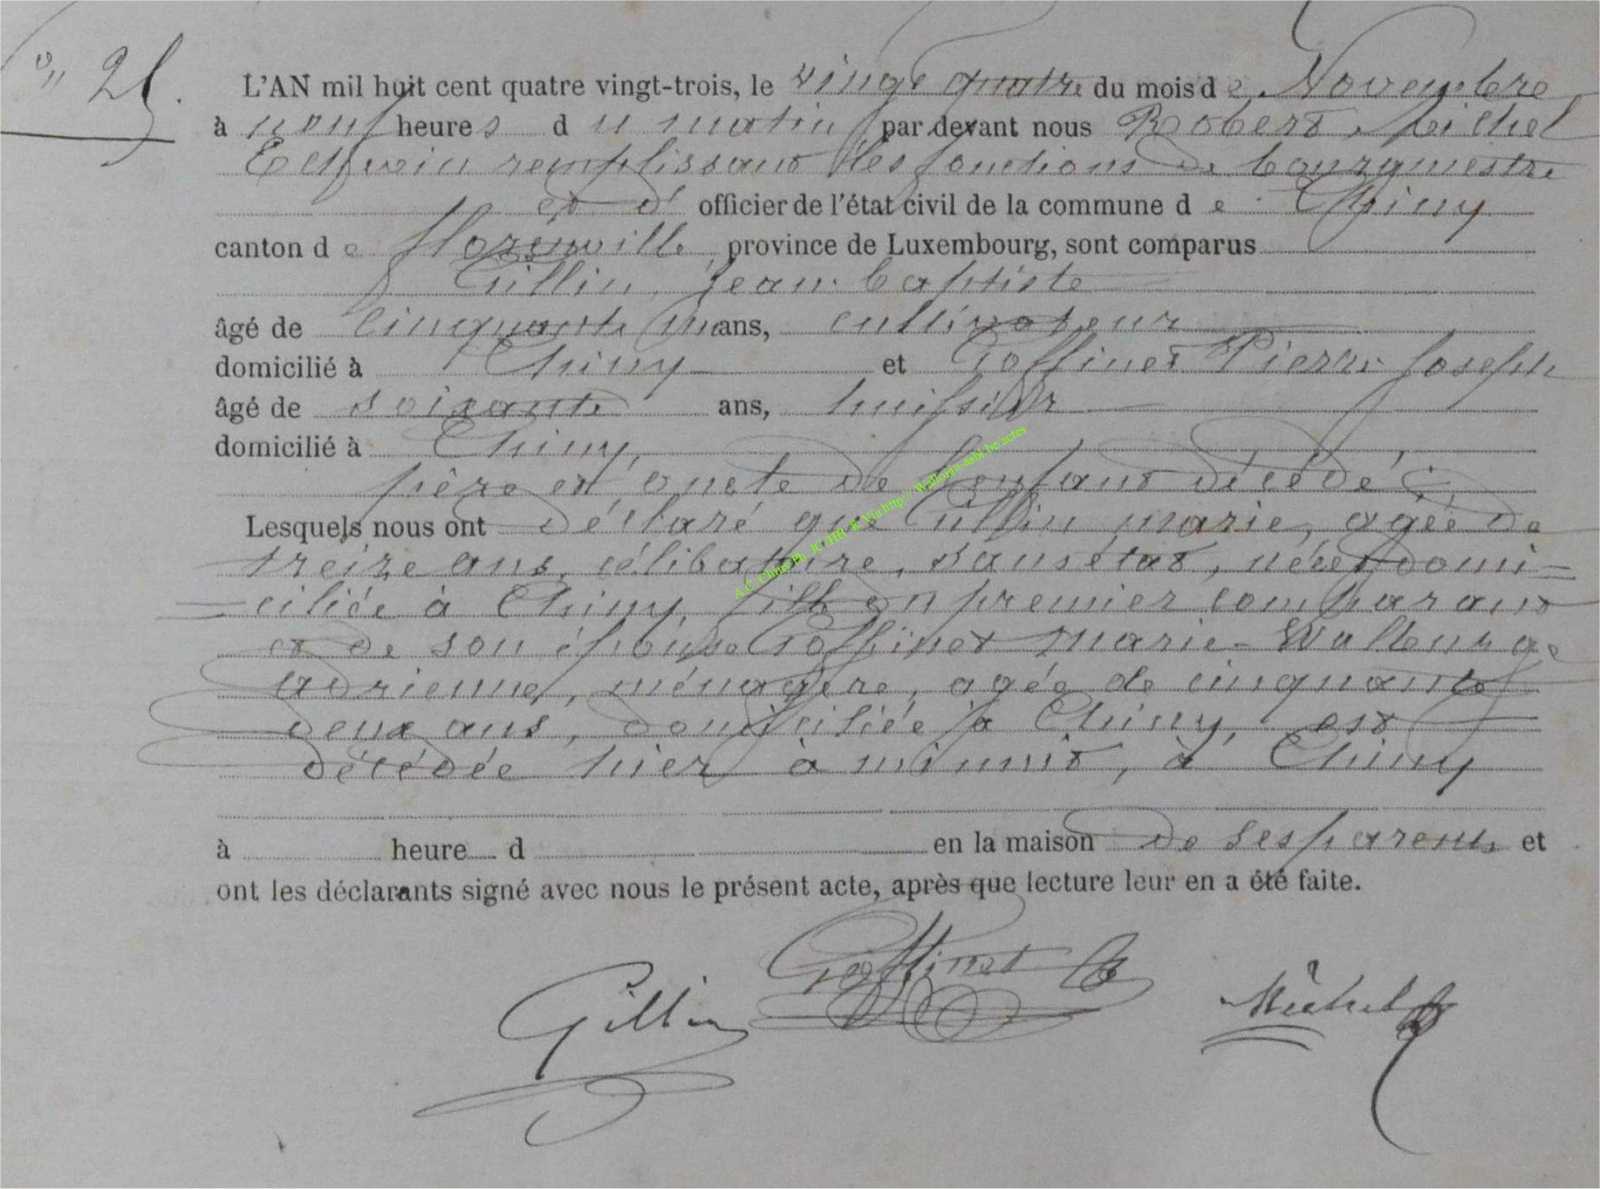 N° 25.
L'AN mil huit cent quatre vingt-trois, le vingt quatre du mois de Novembre
à neuf heures du matin par devant nous Robert, Michel
Echevin remplissant les fonctions de bourgmestre
et d' officier de l'état civil de la commune de Chiny
canton de florenville, province de Luxembourg, sont comparus
Gillin, Jean-baptiste
âgé de cinquante ans, cultivateur
domicilié à Chiny et Goffinet Pierre Joseph
âgé de soixante ans, huissier
domicilié à Chiny,
père et oncle de l'enfant décédé;
Lesquels nous ont déclaré que Gillin marie, agée de
treize ans, célibataire, sans état, née et domi=
=ciliée à Chiny, fille du premier comparant
et de son épouse Goffinet Marie-Walburge
adrienne, ménagère, agée de cinquante
deux ans, domiciliée à Chiny, est
décédée hier à minuit, à Chiny
à heure d en la maison de ses parents et
ont les déclarants signé avec nous le présent acte, après que lecture leur en a été faite.
Goffinet
Gillin
Michel